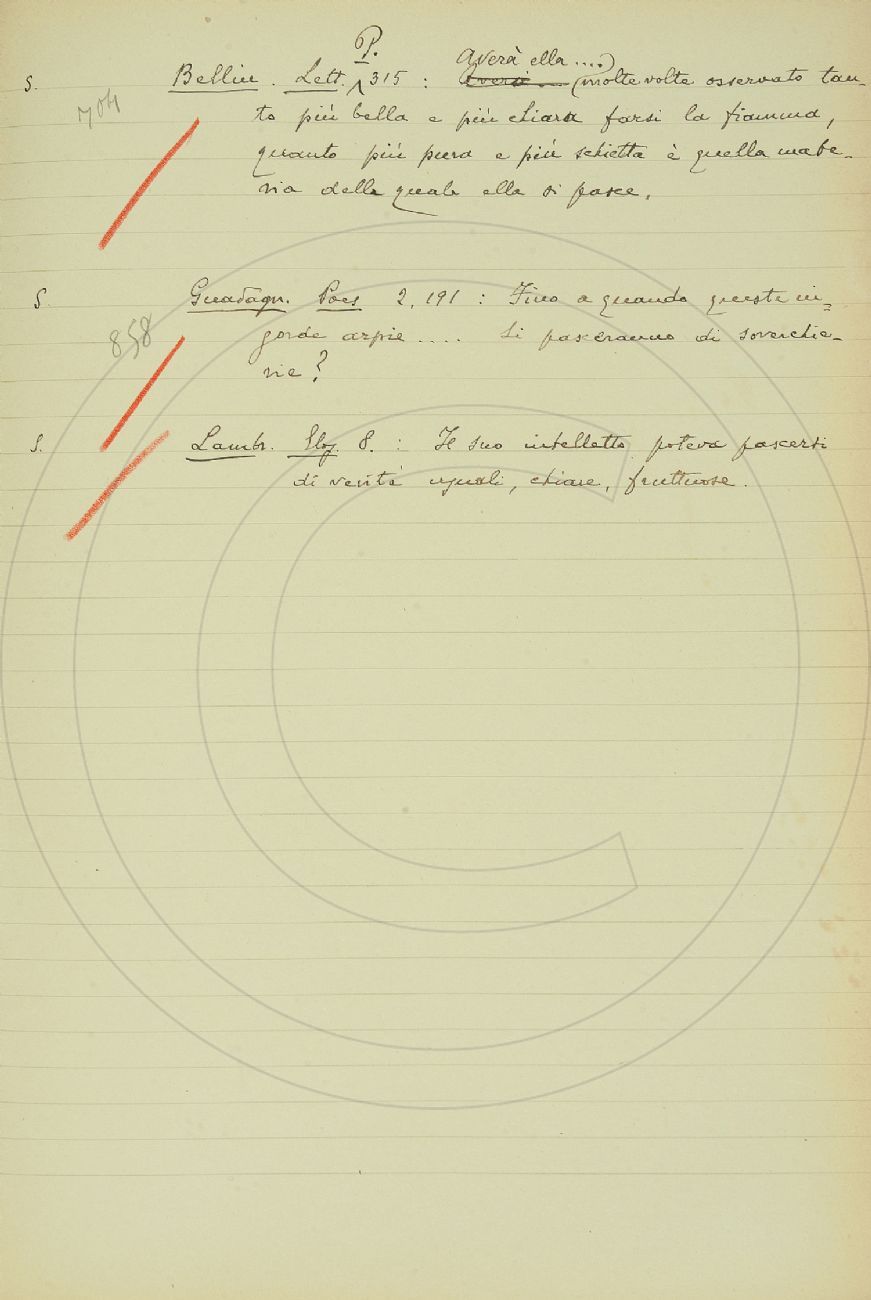 P.
Averà ella ....)
S. Bellin. Lett. 315 : (molte volte osservato tan-
704
to più bella e più chiara farsi la fiamma,
quanto più pura e più schietta è quella mate-
ria della quale ella si pasce.
S. Guadagn. Poes 2, 191 : Fino a quando queste in=
858
gorde arpie .... Si pasceranno di soverchie-
rie?
S. Lambr. Elog. 8. : Il suo intelletto poteva pascersi
di verità uguali, chiare, fruttuose.